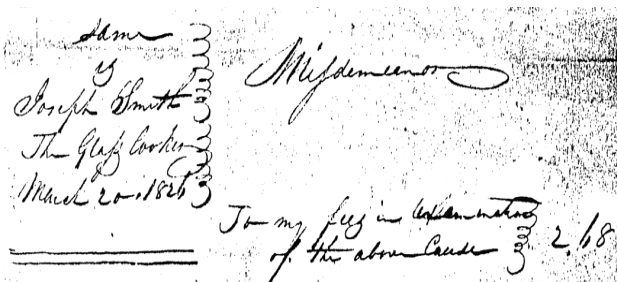 same
vs
Joseph Smith
The Glass Looker
March 20, 1826
Misdemeanor
To my fees in examination
of the above cause 2.68